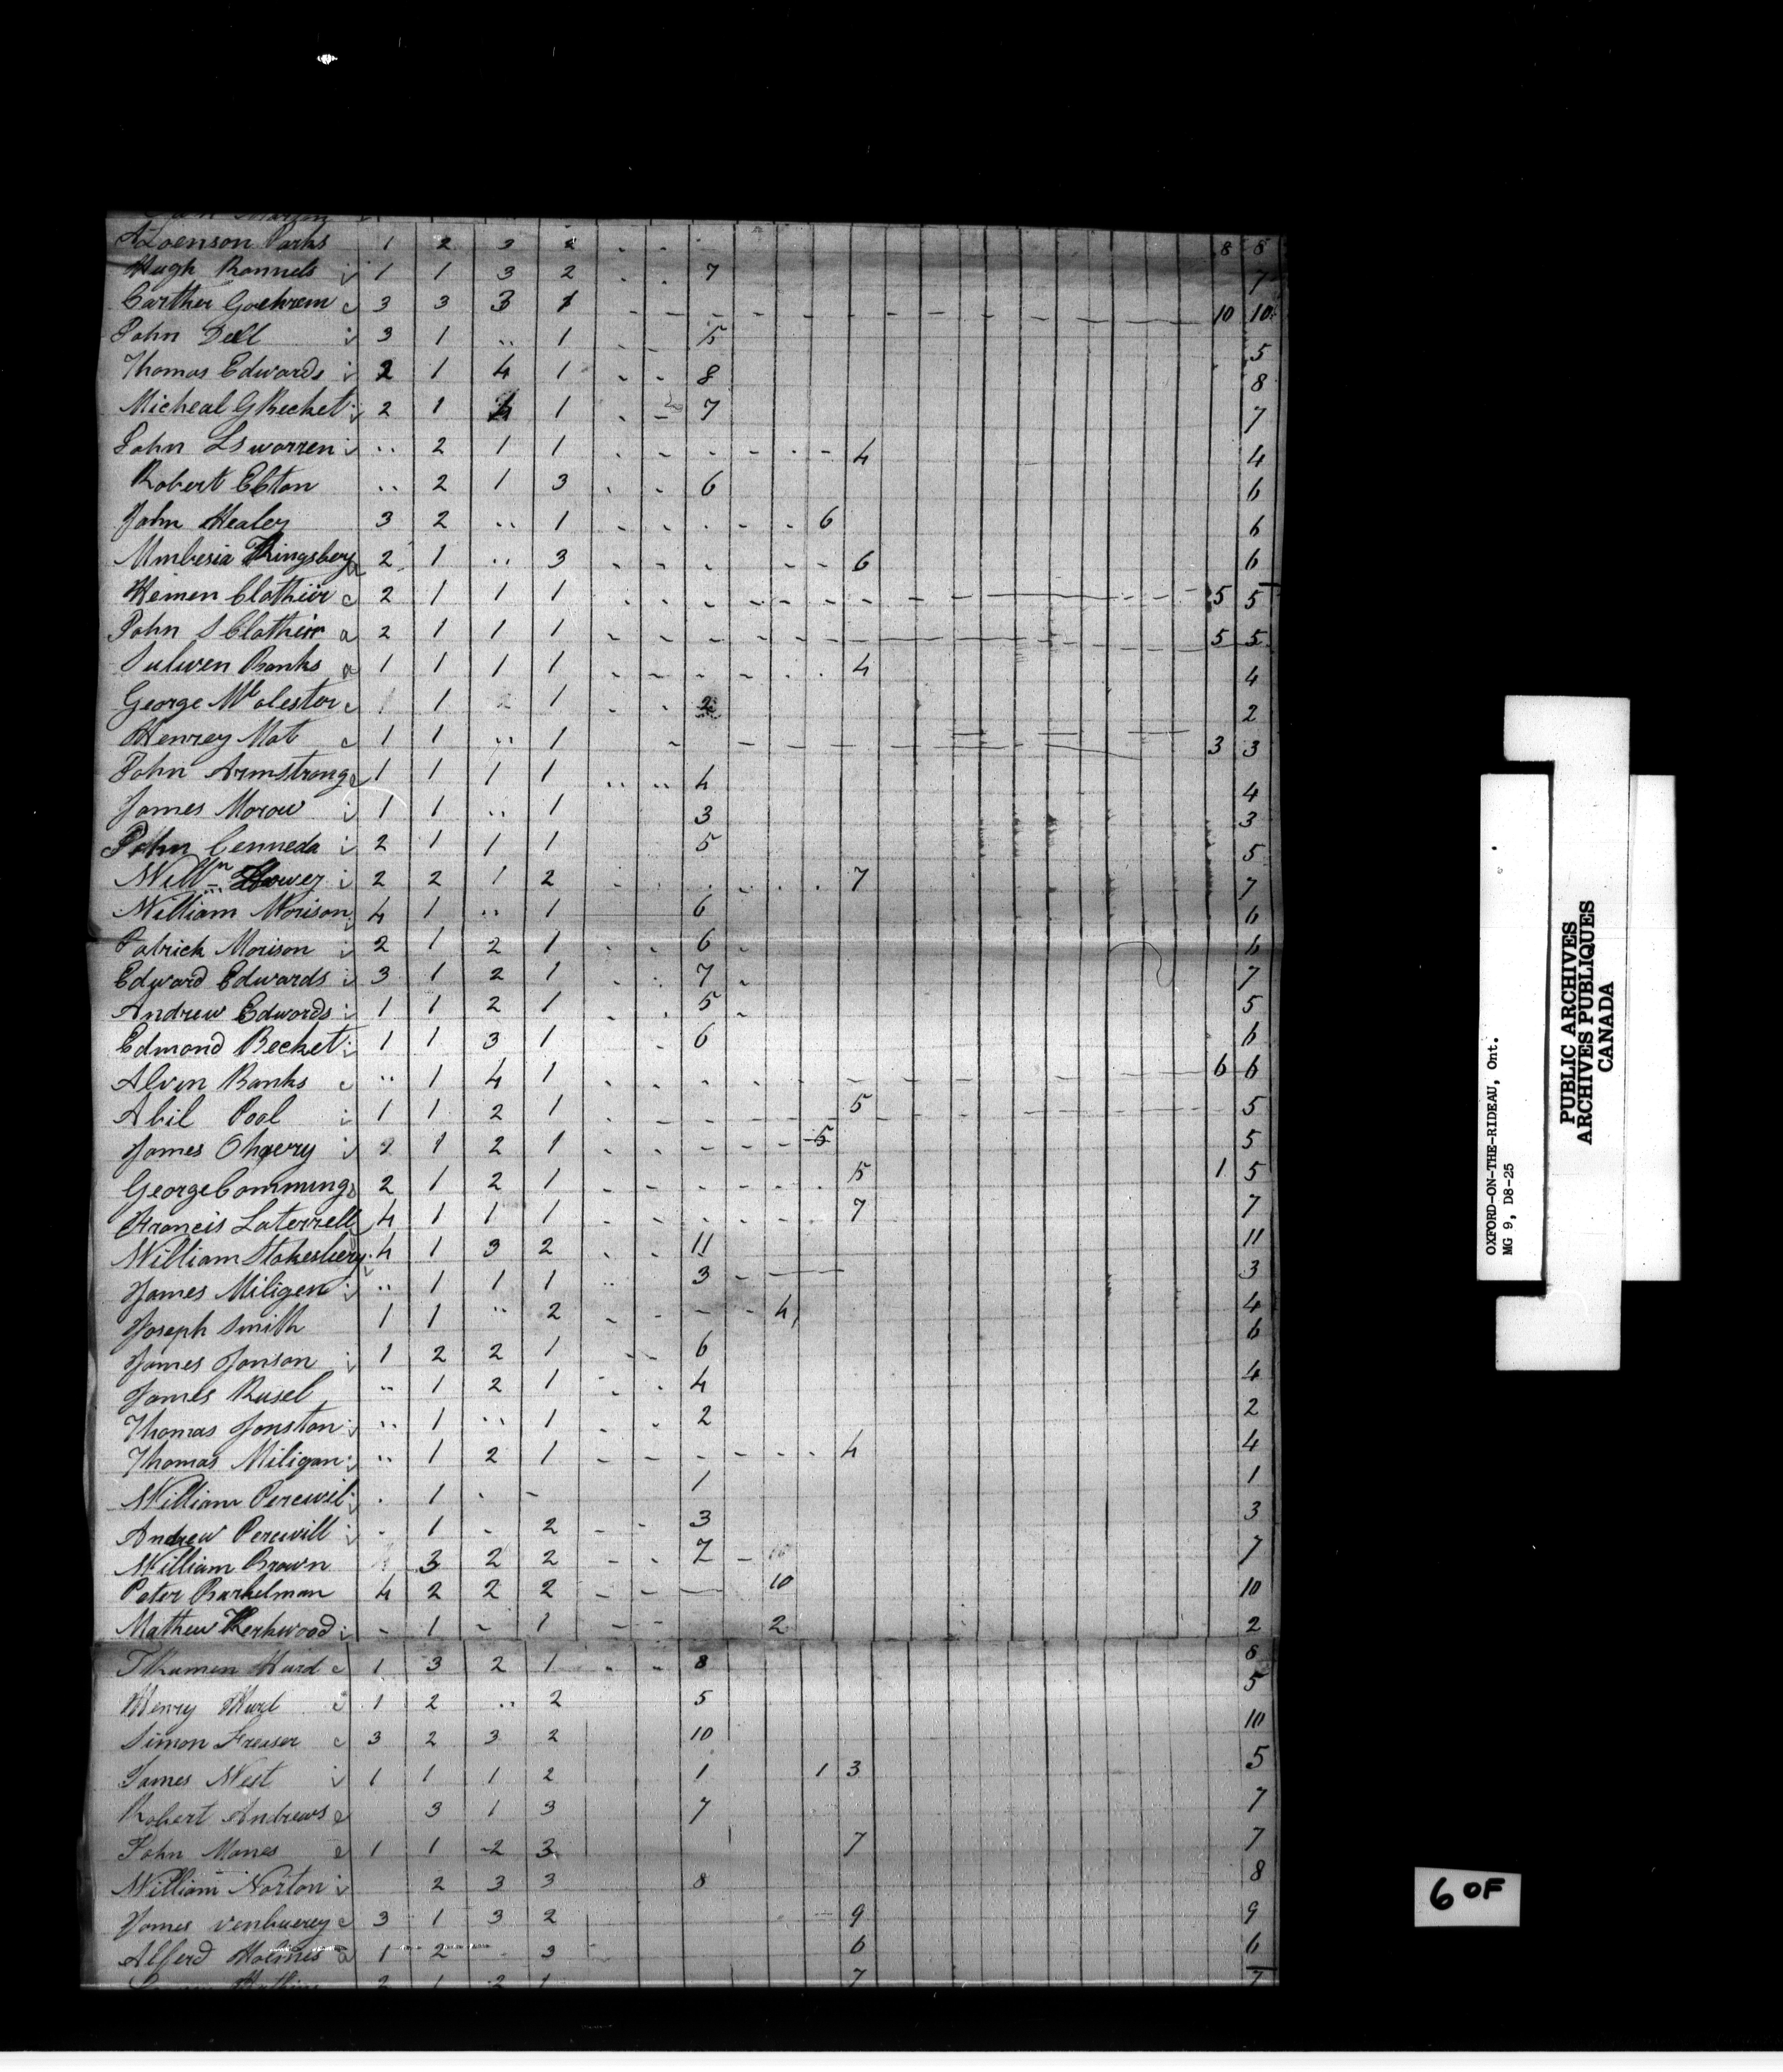 Parks 1 2 3 2 8 8
Hugh Ronnels i 1 1 3 2 7 7
Carther Goehrem c 3 3 3 1 10 10
John Dell i 3 1 .. 1 5 5
Thomas Edwards i 2 1 4 1 8 8
Micheal G Becket i 2 1 4 1 7 7
John LS warren i .. 2 1 1 4 4
Robert Ebton .. 2 1 3 6 6
John Healey 3 2 .. 1 6 6
Kingsbery 2 1 .. 3 6 6
Heimen Clothier c 2 1 1 1 5 5
John S Clothier a 2 1 1 1 5 5
Banks a 1 1 1 1 4 4
George Mc olester c 1 1 2 2
Henrey Mot c 1 1 .. 1 3 3
John Armstrong 1 1 1 1 4 4
James Morow i 1 1 .. 1 3 3
John Cenneda i 2 1 1 1 5 5
Willm i 2 2 1 2 7 7
William Morison 4 1 .. 1 6 6
Patrick Morison i 2 1 2 1 6 6
Edward Edwards i 3 1 2 1 7 7
Andrew Edwards i 1 1 2 1 5 5
Edmond Becket i 1 1 3 1 6 6
Alven Banks c .. 1 4 1 6 6
Abil Pool i 1 1 2 1 5 5
James i 2 1 2 1 5 5
George Commings 2 1 2 1 5 1 5
Francis Laterrell 4 1 1 1 7 7
William Stokesbery 4 1 3 2 11 11
James Miligen i .. 1 1 1 3 3
Joseph Smith 1 1 .. 2 4 4
James Jonson i 1 2 2 1 6 6
James Rusel .. 1 2 1 4 4
Thomas Jonston i .. 1 .. 1 2 2
Thomas Miligan i .. 1 2 1 4 4
William Percivil i . 1 . - 1 1
Andrew Percivill i - 1 - 2 3 3
William Brown 3 2 2 7 7
Peter Barkelman 4 2 2 2 10 10
Mathew Kerkwood i - 1 - 1 2 2
Hurd c 1 3 2 1 8 8
Henry Hurd c 1 2 .. 2 5 5
Simon Freiser c 3 2 3 2 10 10
James West i 1 1 1 2 1 1 3 5
Robert Andrews e 3 1 3 7 7
John Manes e 1 1 2 3 7 7
William Norton i 2 3 3 8 8
James Venbuerey c 3 1 3 2 9 9
Alferd Holmes a 1 2 3 6 6
2 1 2 1 7 7
OXFORD-ON-THE-RIDEAU, Ont.
MG 9, D8-25
PUBLIC ARCHIVES
ARCHIVES PUBLIQUES
CANADA
6 OF